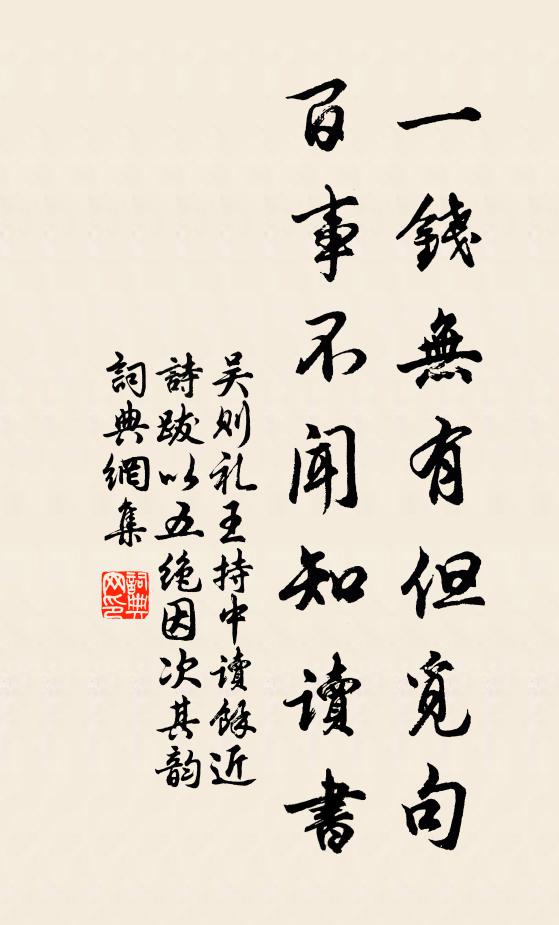 一錢無有但覓句
百事不闻知讀書
吴则礼王持中讀餘近
詩跋以五绝因次其韵
詞典網集
詞典网印